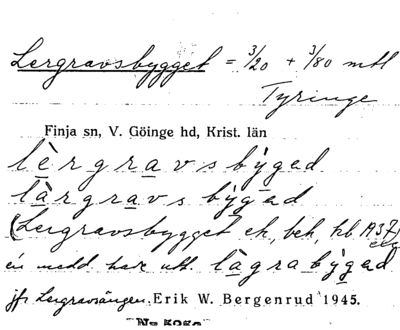 Lergravsbygget = 3/20 + 3/80 mtl
Tyringe
Finja sn, V. Göinge hd, Krist. län
lèrgravsbýgəd
làrgravsbýgəd
(Lergravsbygget ek, beh, kb 1937)
en medd. har utt. làgrabýgəd
jfr Lergravsängen. Erik W. Bergenrud 1945.